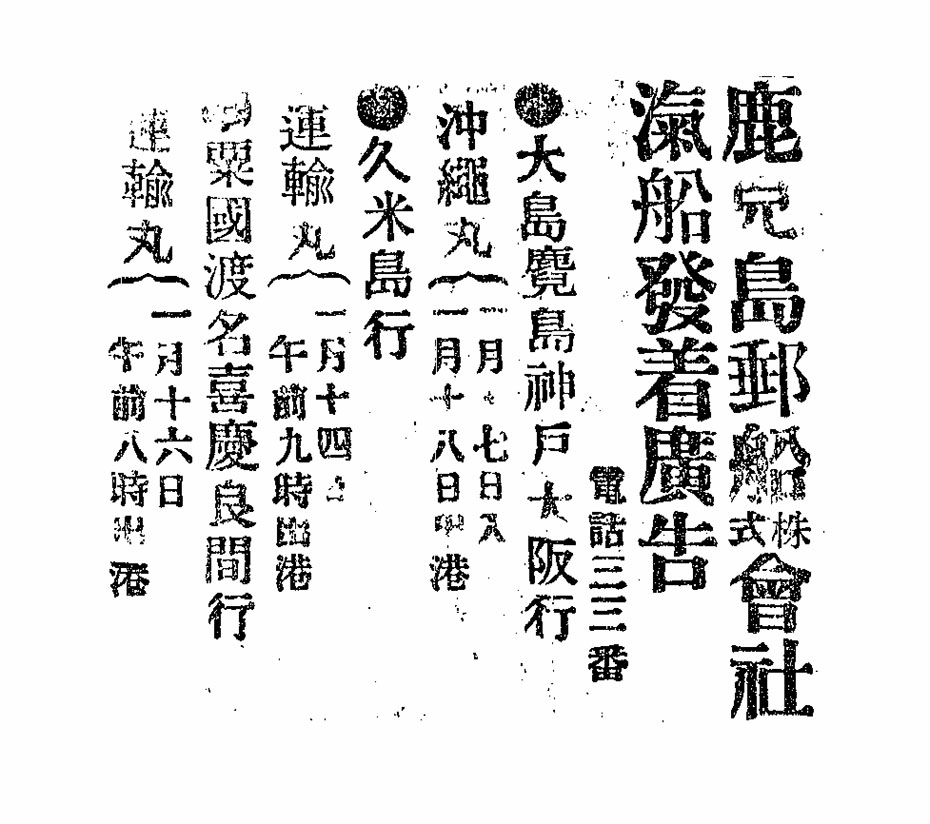 鹿兒島郵船株式會社
滊船發着廣告
電話三三番
●大島鹿兒島神戸大阪行
沖繩丸
一月十七日入
一月十八日出港
●久米島行
運輸丸
一月十四日
午前九時出港
粟國渡名喜慶良間行
運輸丸
一月十六日
午前八時出港